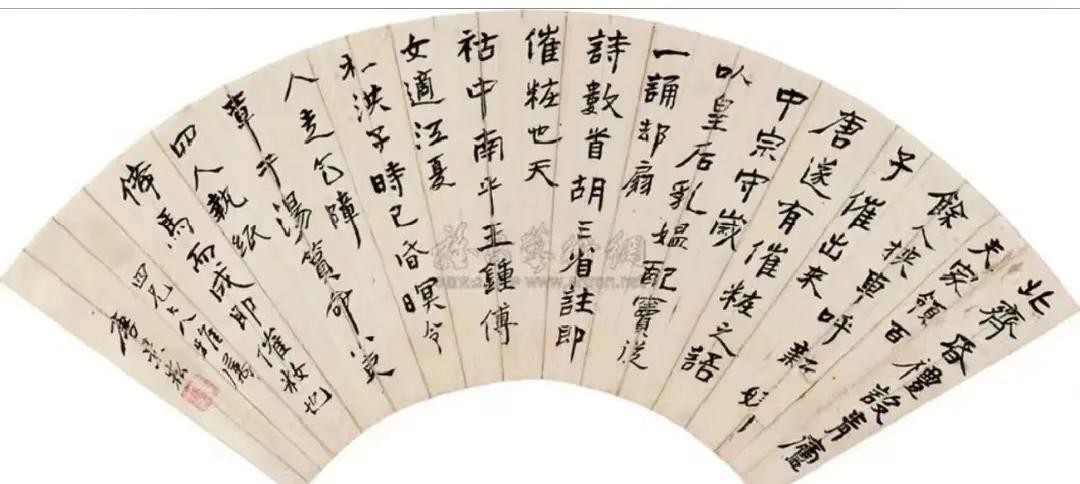 北齊昏禮設青廬
夫家領百
餘人挾車呼新婦
子催出來
唐遂有催粧之語
中宗守歲
以皇后乳媼配竇從
一誦却扇
詩數首胡三省註即
催粧也天
祜中南平王鍾傳
女適江夏
杜洪子時已昏暝令
人走乞障
章于湯篔命小吏
四人執紙
倚馬而成即催妝也
四兄大人雅屬
唐景崧